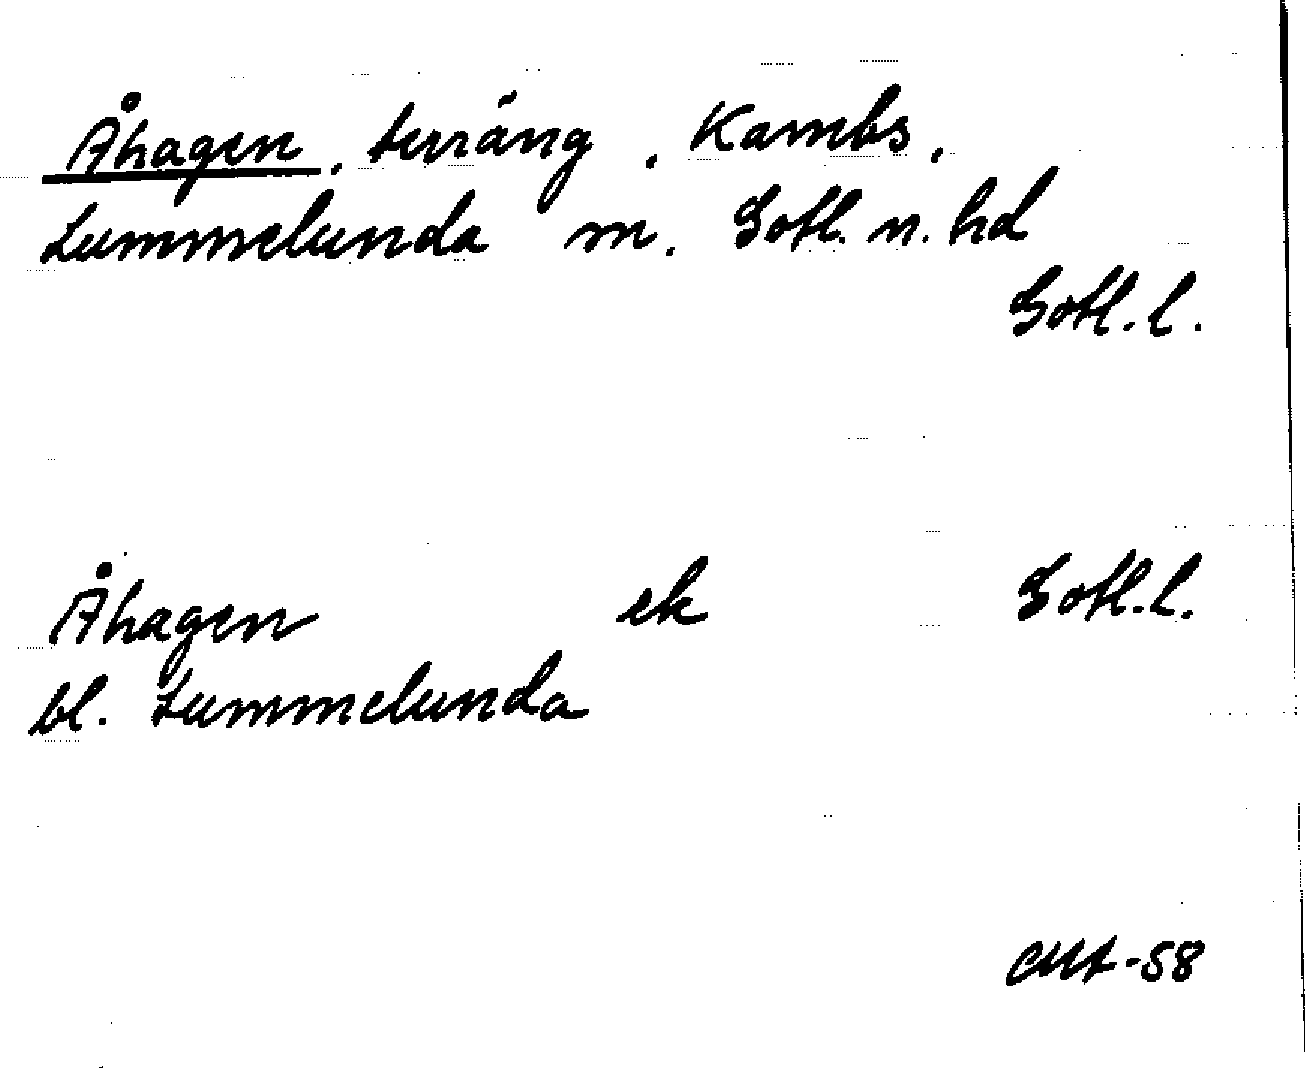 Åhagen, terräng, Kambs,
Lummelunda m. Gotl. n. hd
Gotl. l.
Åhagen ek Gotl. l.
bl. Lummelunda
-58